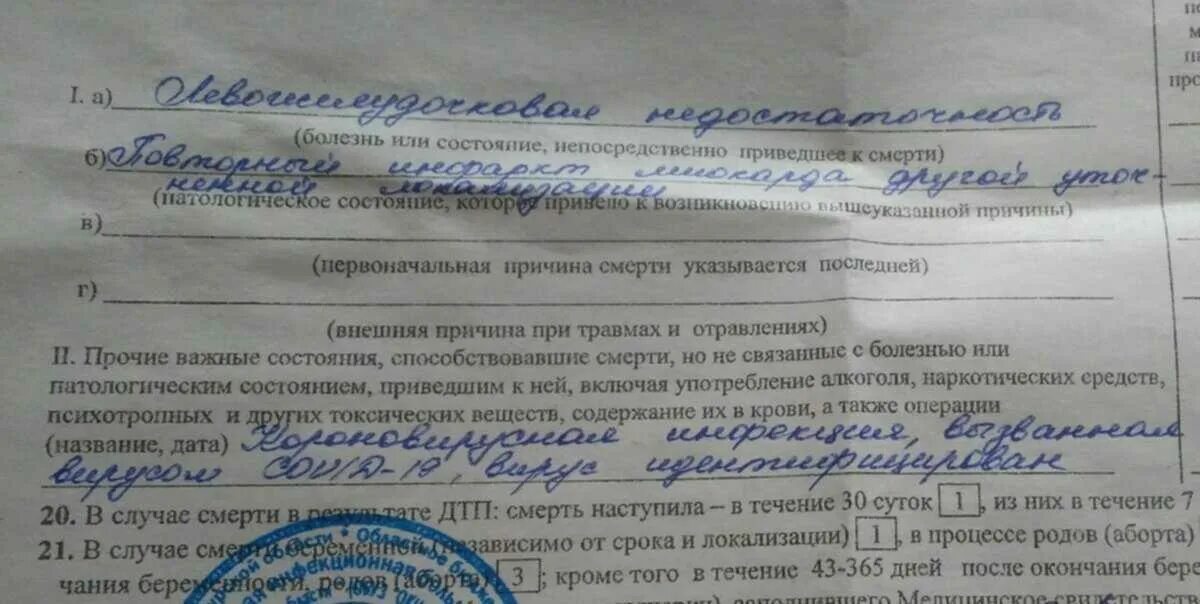 I. а) Левожелудочковая недостаточность
(болезнь или состояние, непосредственно приведшее к смерти)
б) Повторный инфаркт миокарда другой уточ-
ненной локализации
(патологическое состояние, которое привело к возникновению вышеуказанной причины)
в)
(первоначальная причина смерти указывается последней)
г)
(внешняя причина при травмах и отравлениях)
II. Прочие важные состояния, способствовавшие смерти, но не связанные с болезнью или
патологическим состоянием, приведшим к ней, включая употребление алкоголя, наркотических средств,
психотропных и других токсических веществ, содержание их в крови, а также операции
(название, дата) Короновирусная инфекция, вызванная
вирусом COVID-19, вирус идентифицирован
20. В случае смерти в результате ДТП: смерть наступила – в течение 30 суток 1 , из них в течение 7
21. В случае смерти беременной (независимо от срока и локализации) 1 , в процессе родов (аборта)
чания беременности, родов (аборта) 3 ; кроме того в течение 43-365 дней после окончания бере
заполнившего Медицинское свидетельств